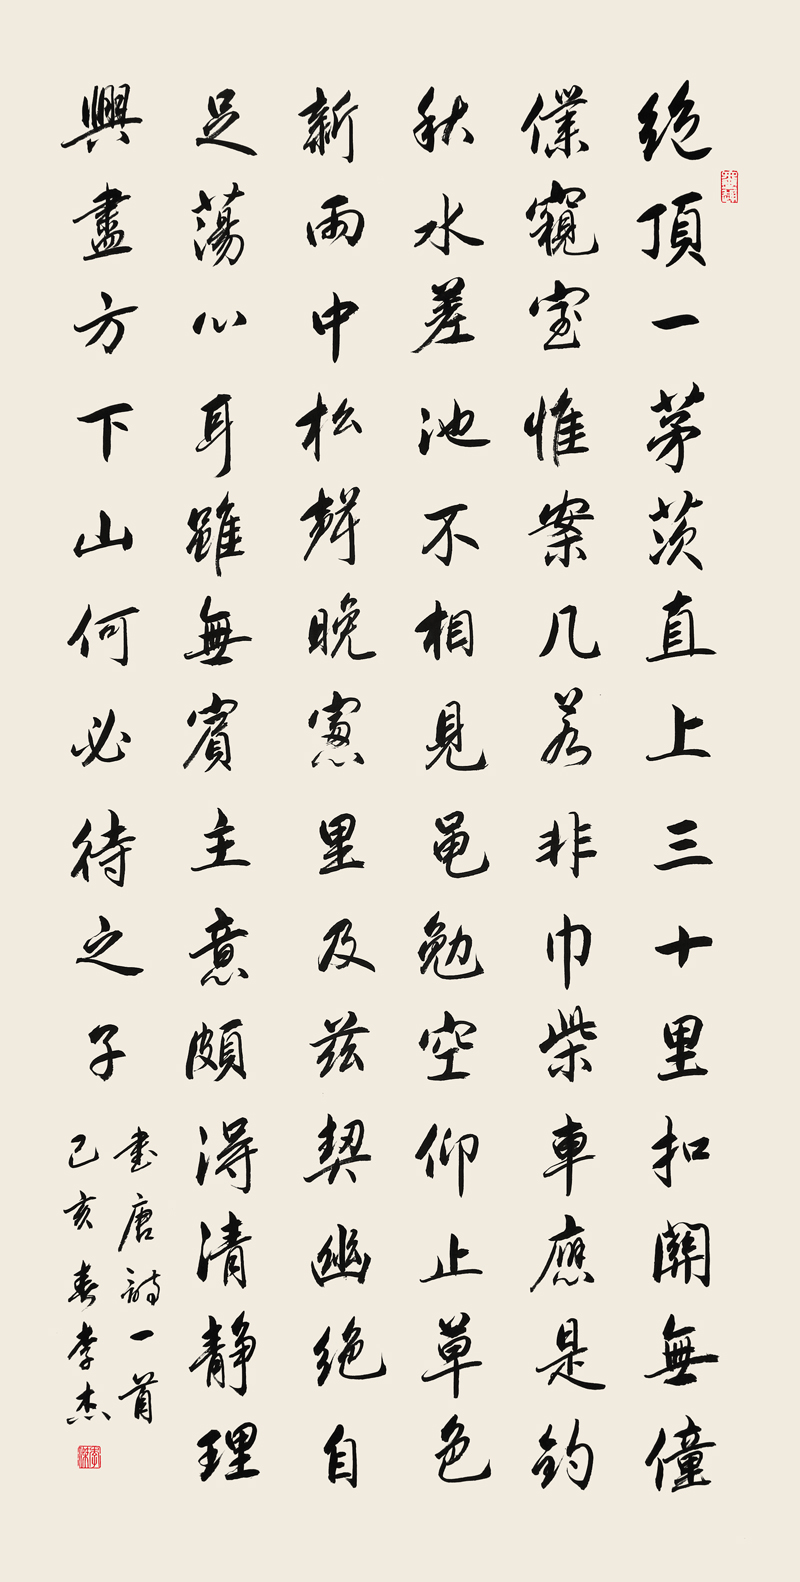 絶頂一茅茨直上三十里扣關無僮
僕窺室惟案几若非巾柴車應是釣
秋水差池不相見黽勉空仰止草色
新雨中松聲晚窻里及兹契幽絶自
足蕩心耳雖無賓主意頗得清靜理
興盡方下山何必待之子
书唐詩一首
己亥春李杰